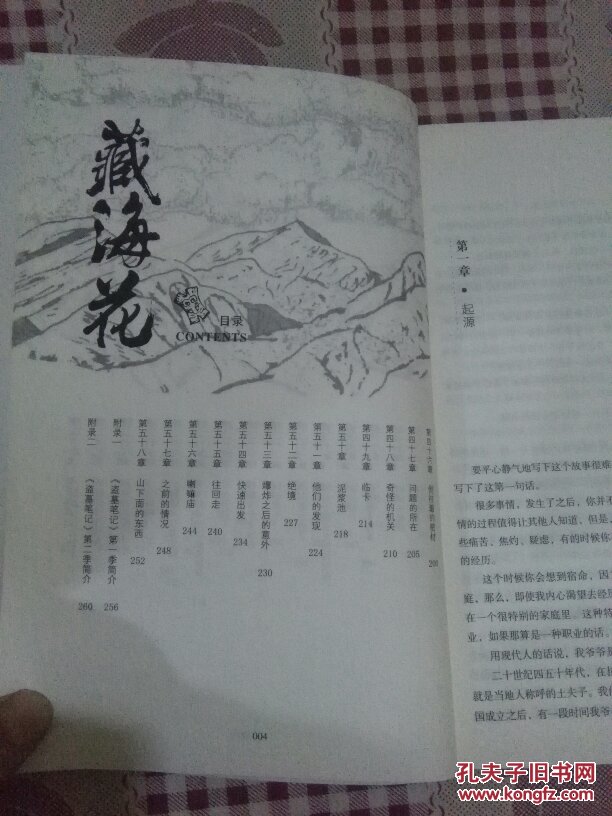 藏海花
目录
CONTENTS
第四十七章 问题的所在 205
第四十八章 奇怪的机关 210
第四十九章 临卡 214
第五十章 泥浆池 218
第五十一章 他们的发现 224
第五十二章 绝境 227
第五十三章 爆炸之后的意外 230
第五十四章 快速出发 234
第五十五章 往回走 240
第五十六章 喇嘛庙 244
第五十七章 之前的情况 248
第五十八章 山下面的东西 252
附录一 《盗墓笔记》第一季简介 256
附录二 《盗墓笔记》第二季简介 260
004
第一章·起源
要平心静气地写下这个故事很难
写下了这第一句话。
很多事情，发生了之后，你并不
情的过程值得让其他人知道，但是，
些痛苦、焦灼、疑虑，有的时候你
的经历。
这个时候你会想到宿命，因
庭，那么，即使我内心渴望去经历
在一个很特别的家庭里。这种特
业，如果那算是一种职业的话。
用现代人的话说，我爷爷
二十世纪四五十年代，在
就是当地人称呼的土夫子。我
国成立之后，有一段时间我爷
孔夫子旧书网
www.kongfz.com